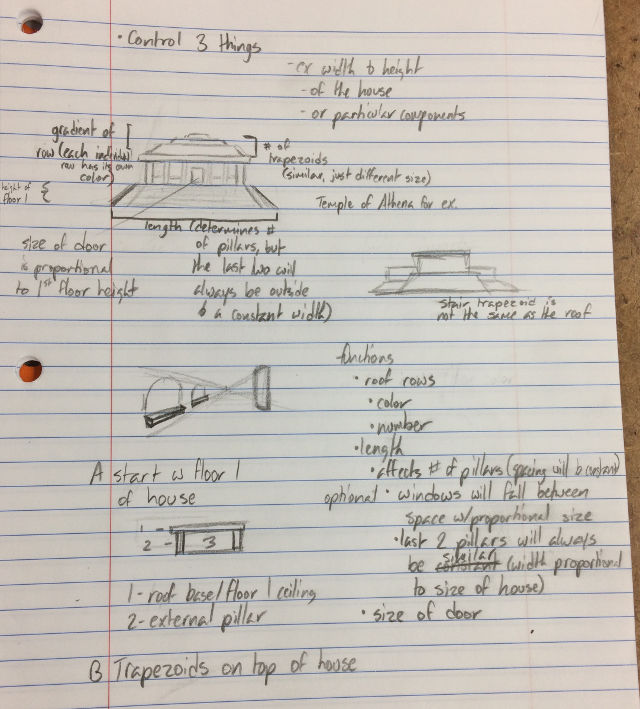 • Control 3 things
- ex width to height
- of the house
- or particular components
gradient of
row (each individual
row has its own
color)
# of
trapezoids
(similar, just different size)
height of
floor 1
Temple of Athena for ex.
length (determines #
of pillars, but
the last two will
always be outside
& a constant width)
size of door
is proportional
to 1st floor height
stair trapezoid is
not the same as the roof
functions
• roof rows
• color
• number
• length
• affects # of pillars (spacing will b constant)
optional • windows will fall between
space w/proportional size
• last 2 pillars will always
be constant similar (width proportional
to size of house)
• size of door
A start w floor 1
of house
1
2
3
1- roof base/floor 1 ceiling
2- external pillar
B Trapezoids on top of house